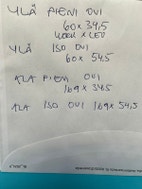 YLÄ PIENI OVI
60 x 34,5
YLÄ ISO OVI
60 x 54,5
ALA PIENI OVI
169 x 34,5
ALA ISO OVI 169 x 54,5